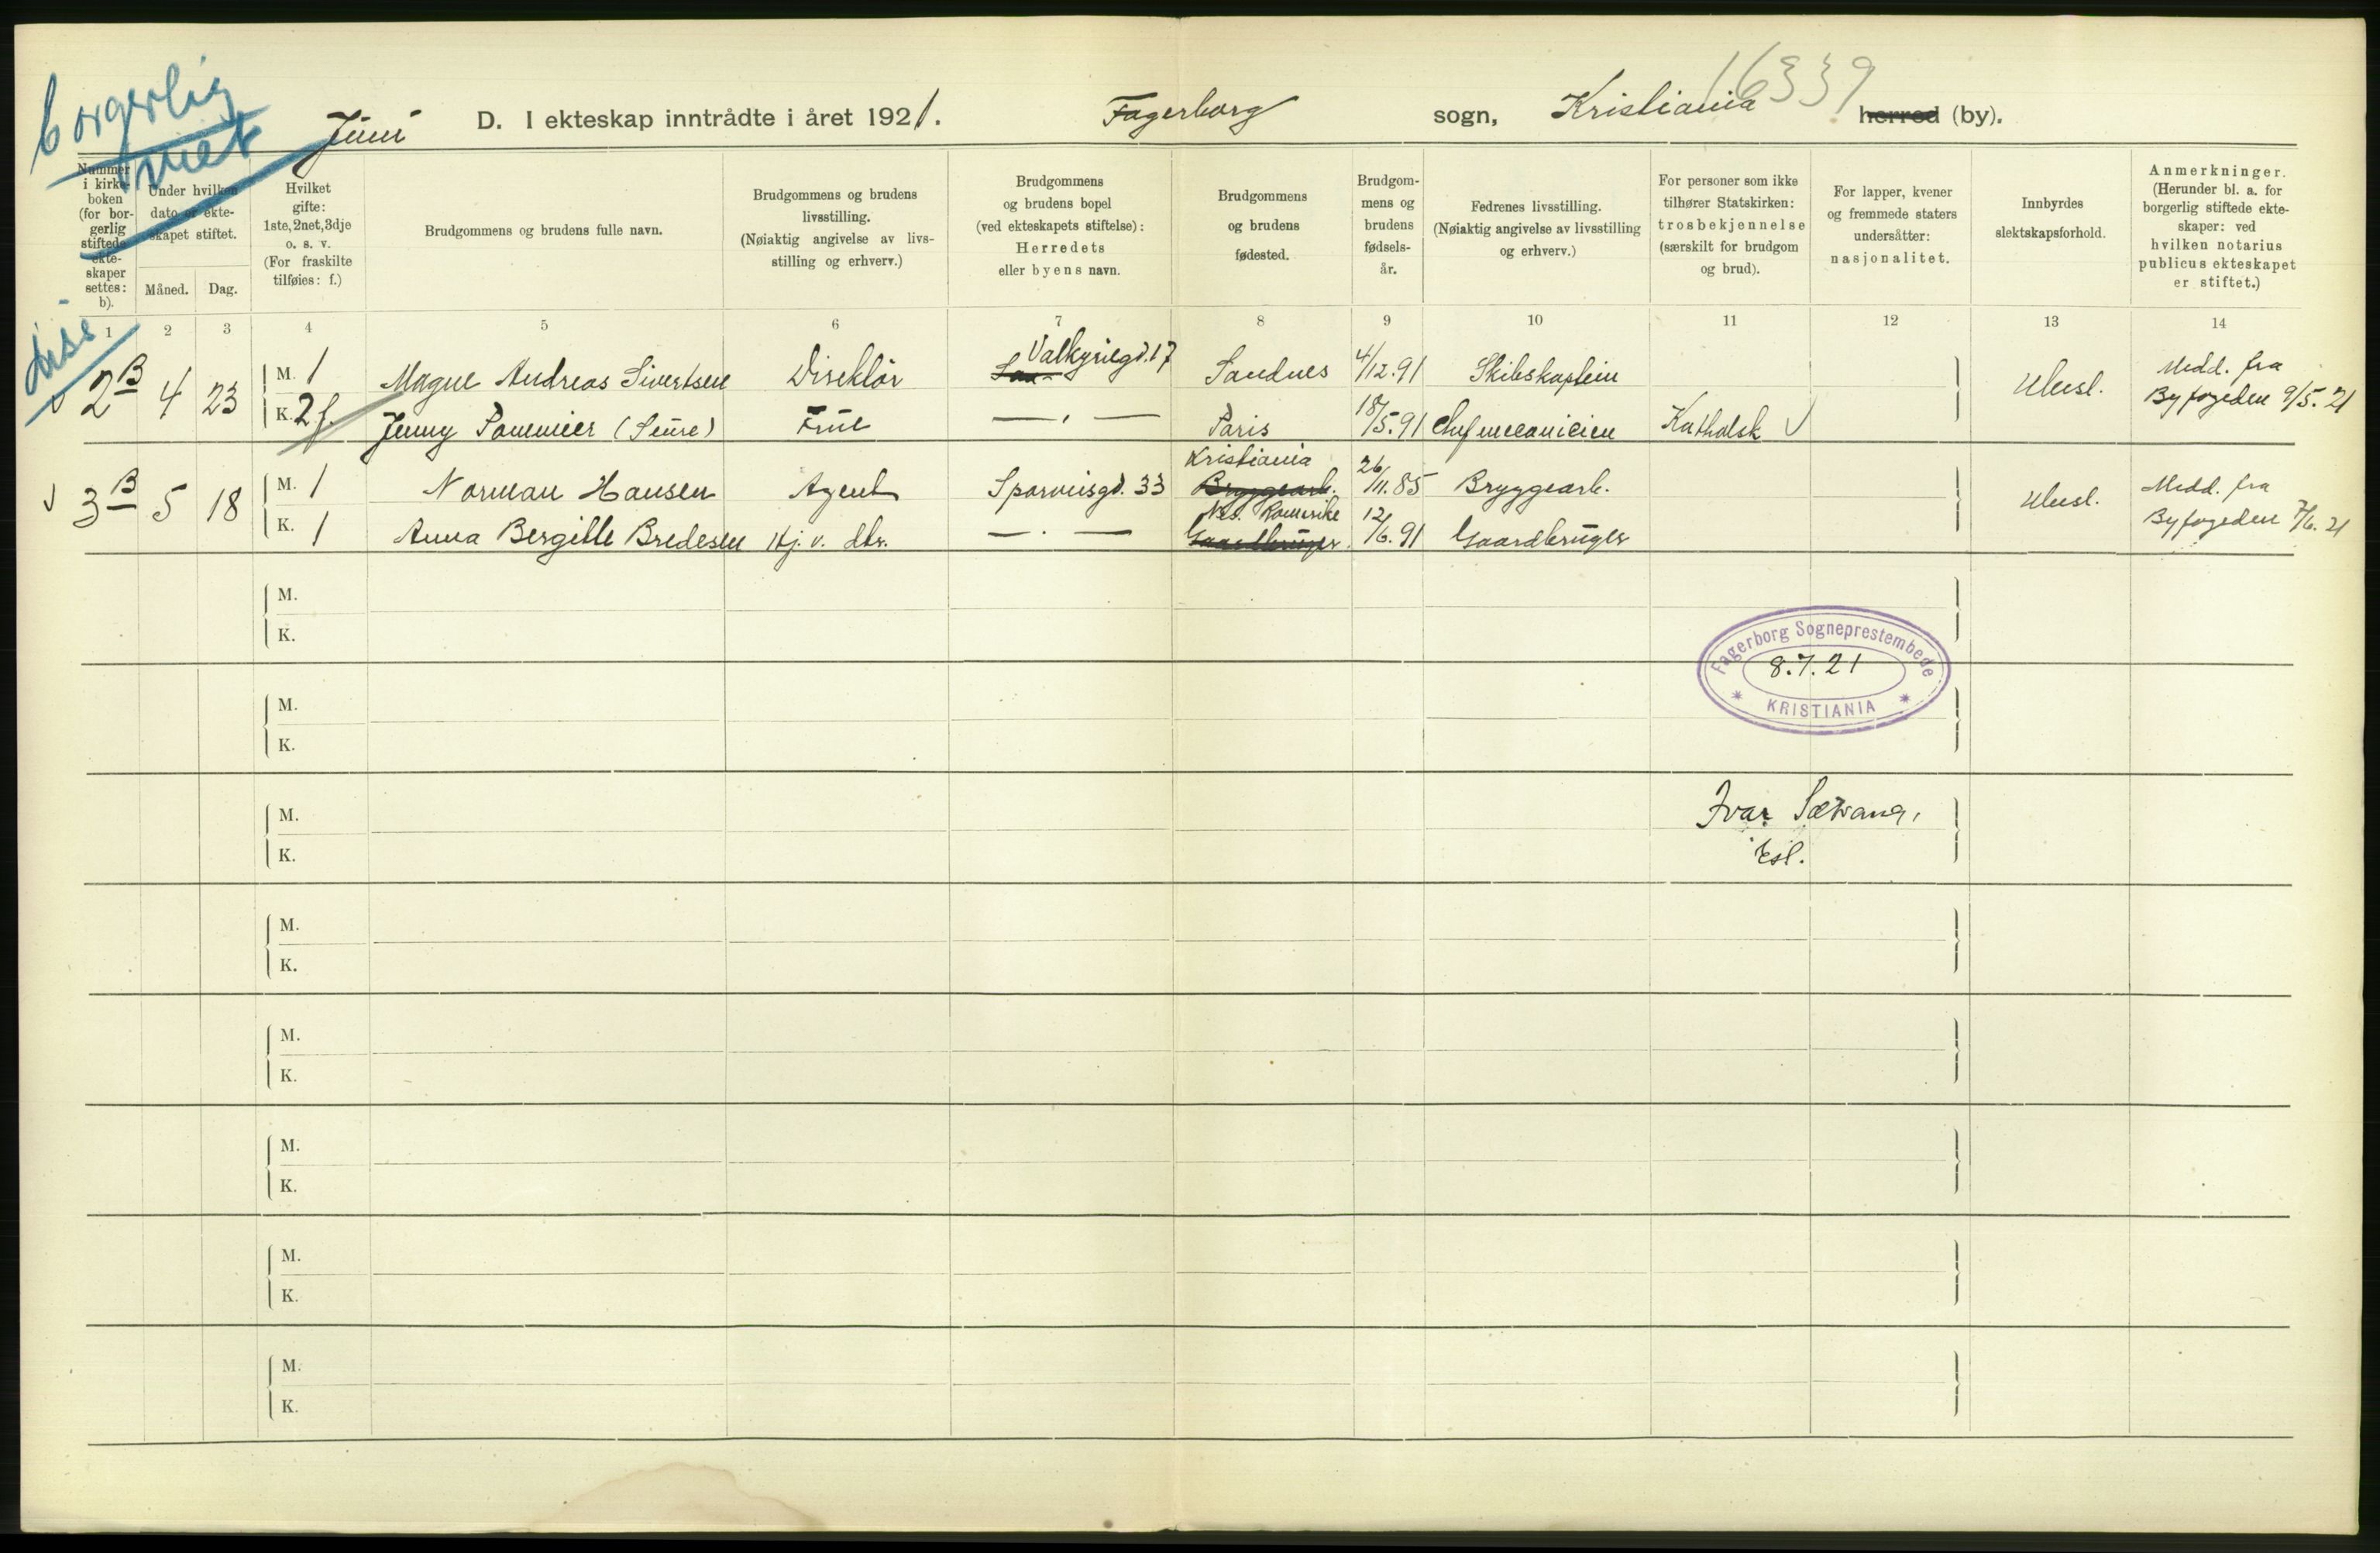 borgerlig
viet
16339
Juni D. I ekteskap inntrådte i året 1921. Fagerborg sogn, Kristiania herred (by).
Nummer i kirkeboken (for borgerlig stiftede ekteskaper settes: b).
Under hvilken dato er ekteskapet stiftet.
Måned. Dag.
Hvilket gifte: 1ste, 2net, 3dje o. s. v. (For fraskilte tilføies: f.)
Brudgommens og brudens fulle navn.
Brudgommens og brudens livsstilling. (Nøiaktig angivelse av livsstilling og erhverv.)
Brudgommens og brudens bopel (ved ekteskapets stiftelse): Herredets eller byens navn.
Brudgommens og brudens fødested.
Brudgommens og brudens fødselsår.
Fedrenes livsstilling. (Nøiaktig angivelse av livsstilling og erhverv.)
For personer som ikke tilhører Statskirken: trosbekjennelse (særskilt for brudgom og brud).
For lapper, kvener og fremmede staters undersåtter: nasjonalitet.
Innbyrdes slektskapsforhold.
Anmerkninger. (Herunder bl. a. for borgerlig stiftede ekteskaper: ved hvilken notarius publicus ekteskapet er stiftet.)
1 2 3 4 5 6 7 8 9 10 11 12 13 14
2 B 4 23 M. 1 Magne Andreas Sivertsen Direktør Valkyriegd. 17 Sandnes 4/12.91 Skibskaptein Ubesl. Medd. fra Byfogeden 9/5. 21
K. 2 f. Jenny Pommier (Seure) Frue — " — Paris 18/5.91 Chef mecanicien Katholsk
3 B 5 18 M. 1 Norman Hansen Agent Sporveisgd. 33 Kristiania Bryggearb. 26/11.85 Bryggearb. Ubesl. Medd. fra Byfogeden 7/6. 21
K. 1 Anna Bergitte Bredesen Hj. v. dtr. — " — Nes. Romerike Gaardbruger 12/6.91 Gaardbruger
M.
K.
Fagerborg Sogneprestembede
8.7.21
KRISTIANIA
M.
K.
M. Ivar Sætrang,
K.
M.
K.
M.
K.
M.
K.
M.
K.
M.
K.